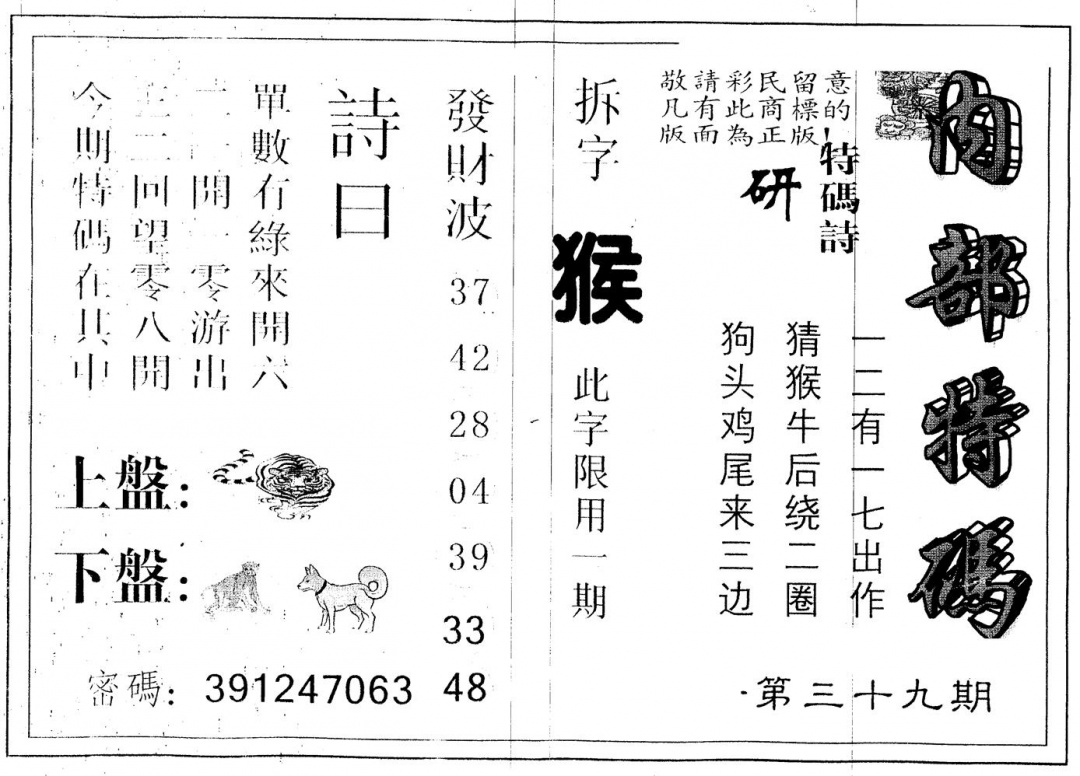 内部特碼
敬請彩民留意
几有此商標的
版而為正版!
特碼詩
研
一二有一七出作
猜猴牛后绕二圈
狗头鸡尾来三边
第三十九期
拆字
猴
此字限用一期
發財波
37
42
28
04
39
33
48
詩曰
單數有綠來開六
開一零游出
二回望零八開
今期特碼在其中
上盤:
下盤:
密碼: 391247063